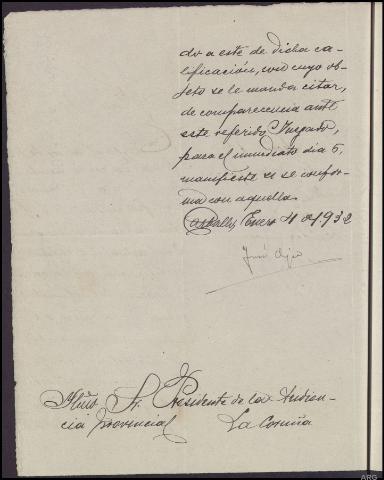 do a este de dicha ca-
lificación, con cuyo ob-
jeto se le manda citar,
de comparecencia ante
este referido Juzgado,
para el inmediato dia 5,
manifieste si se confor-
ma con aquella.
Enero 4 de 1.932
José
Iltmo Sr. Presidente de la Audien-
cia provincial La Coruña
ARG